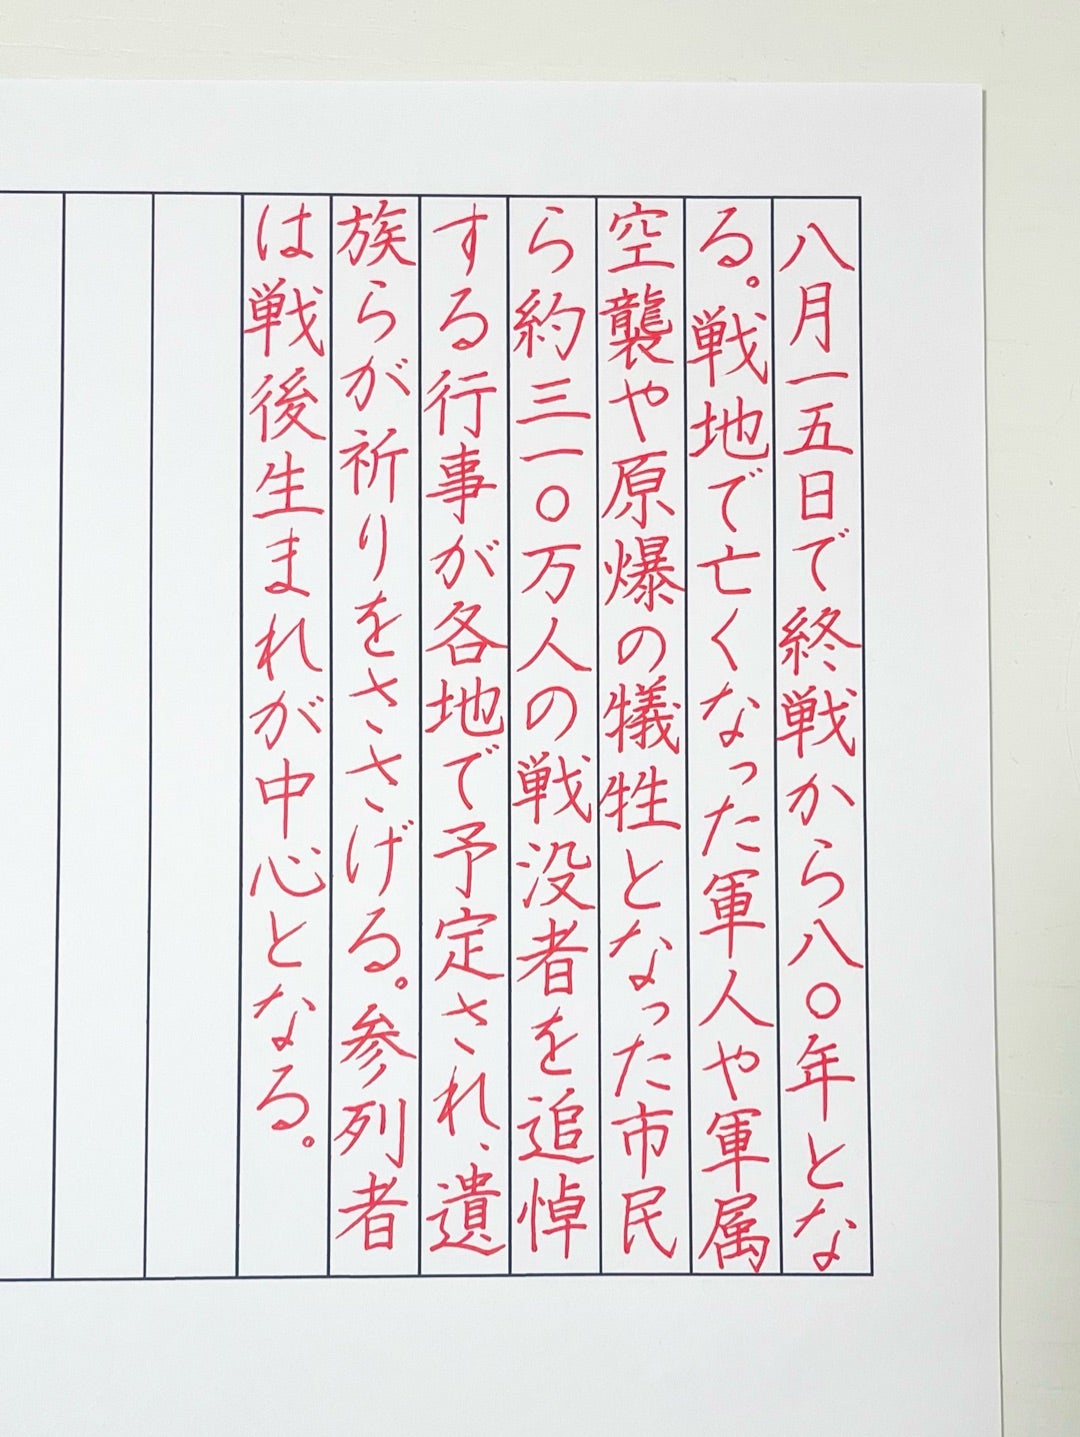 八月一五日で終戦から八〇年とな
る。戦地で亡くなった軍人や軍属
空襲や原爆の犠牲となった市民
ら約三一〇万人の戦没者を追悼
する行事が各地で予定され、遺
族らが祈りをささげる。参列者
は戦後生まれが中心となる。